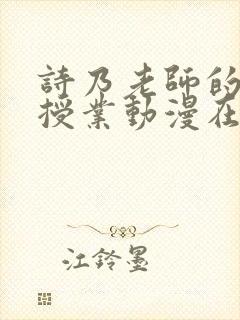 詩乃老師的
授業動漫在
江鈴墨